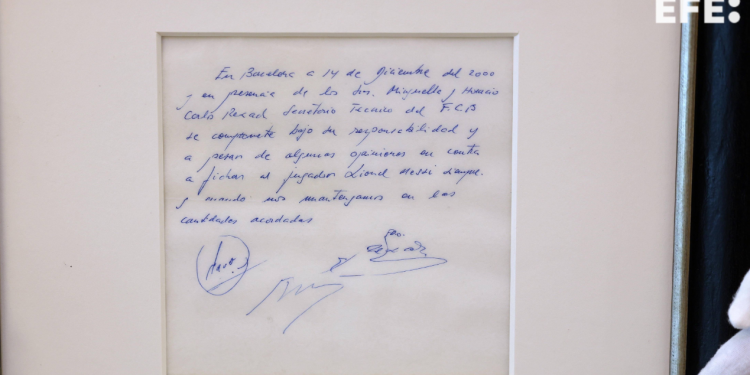 EFE:
En Barcelona a 14 de Diciembre del 2000
y en presencia de los Srs. Minguella y Horacio
Carlos Rexach Secretario Tecnico del F.C.B
se compromete bajo su responsabilidad y
a pesar de algunas opiniones en contra
a fichar al jugador Lionel Messi siempre
y cuando nos mantengamos en las
cantidades acordadas